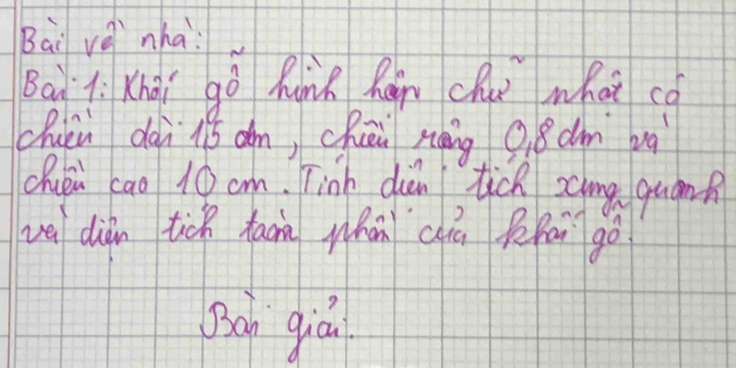 Bài về nhà:
Bài 1: Khối gỗ hình hộp chữ nhật có
chiều dài 15 dm, chiều rộng 0,8 dm và
chiều cao 10 cm. Tính diện tích xung quanh
và diện tích toàn phần của khối gỗ.
Bài giải.